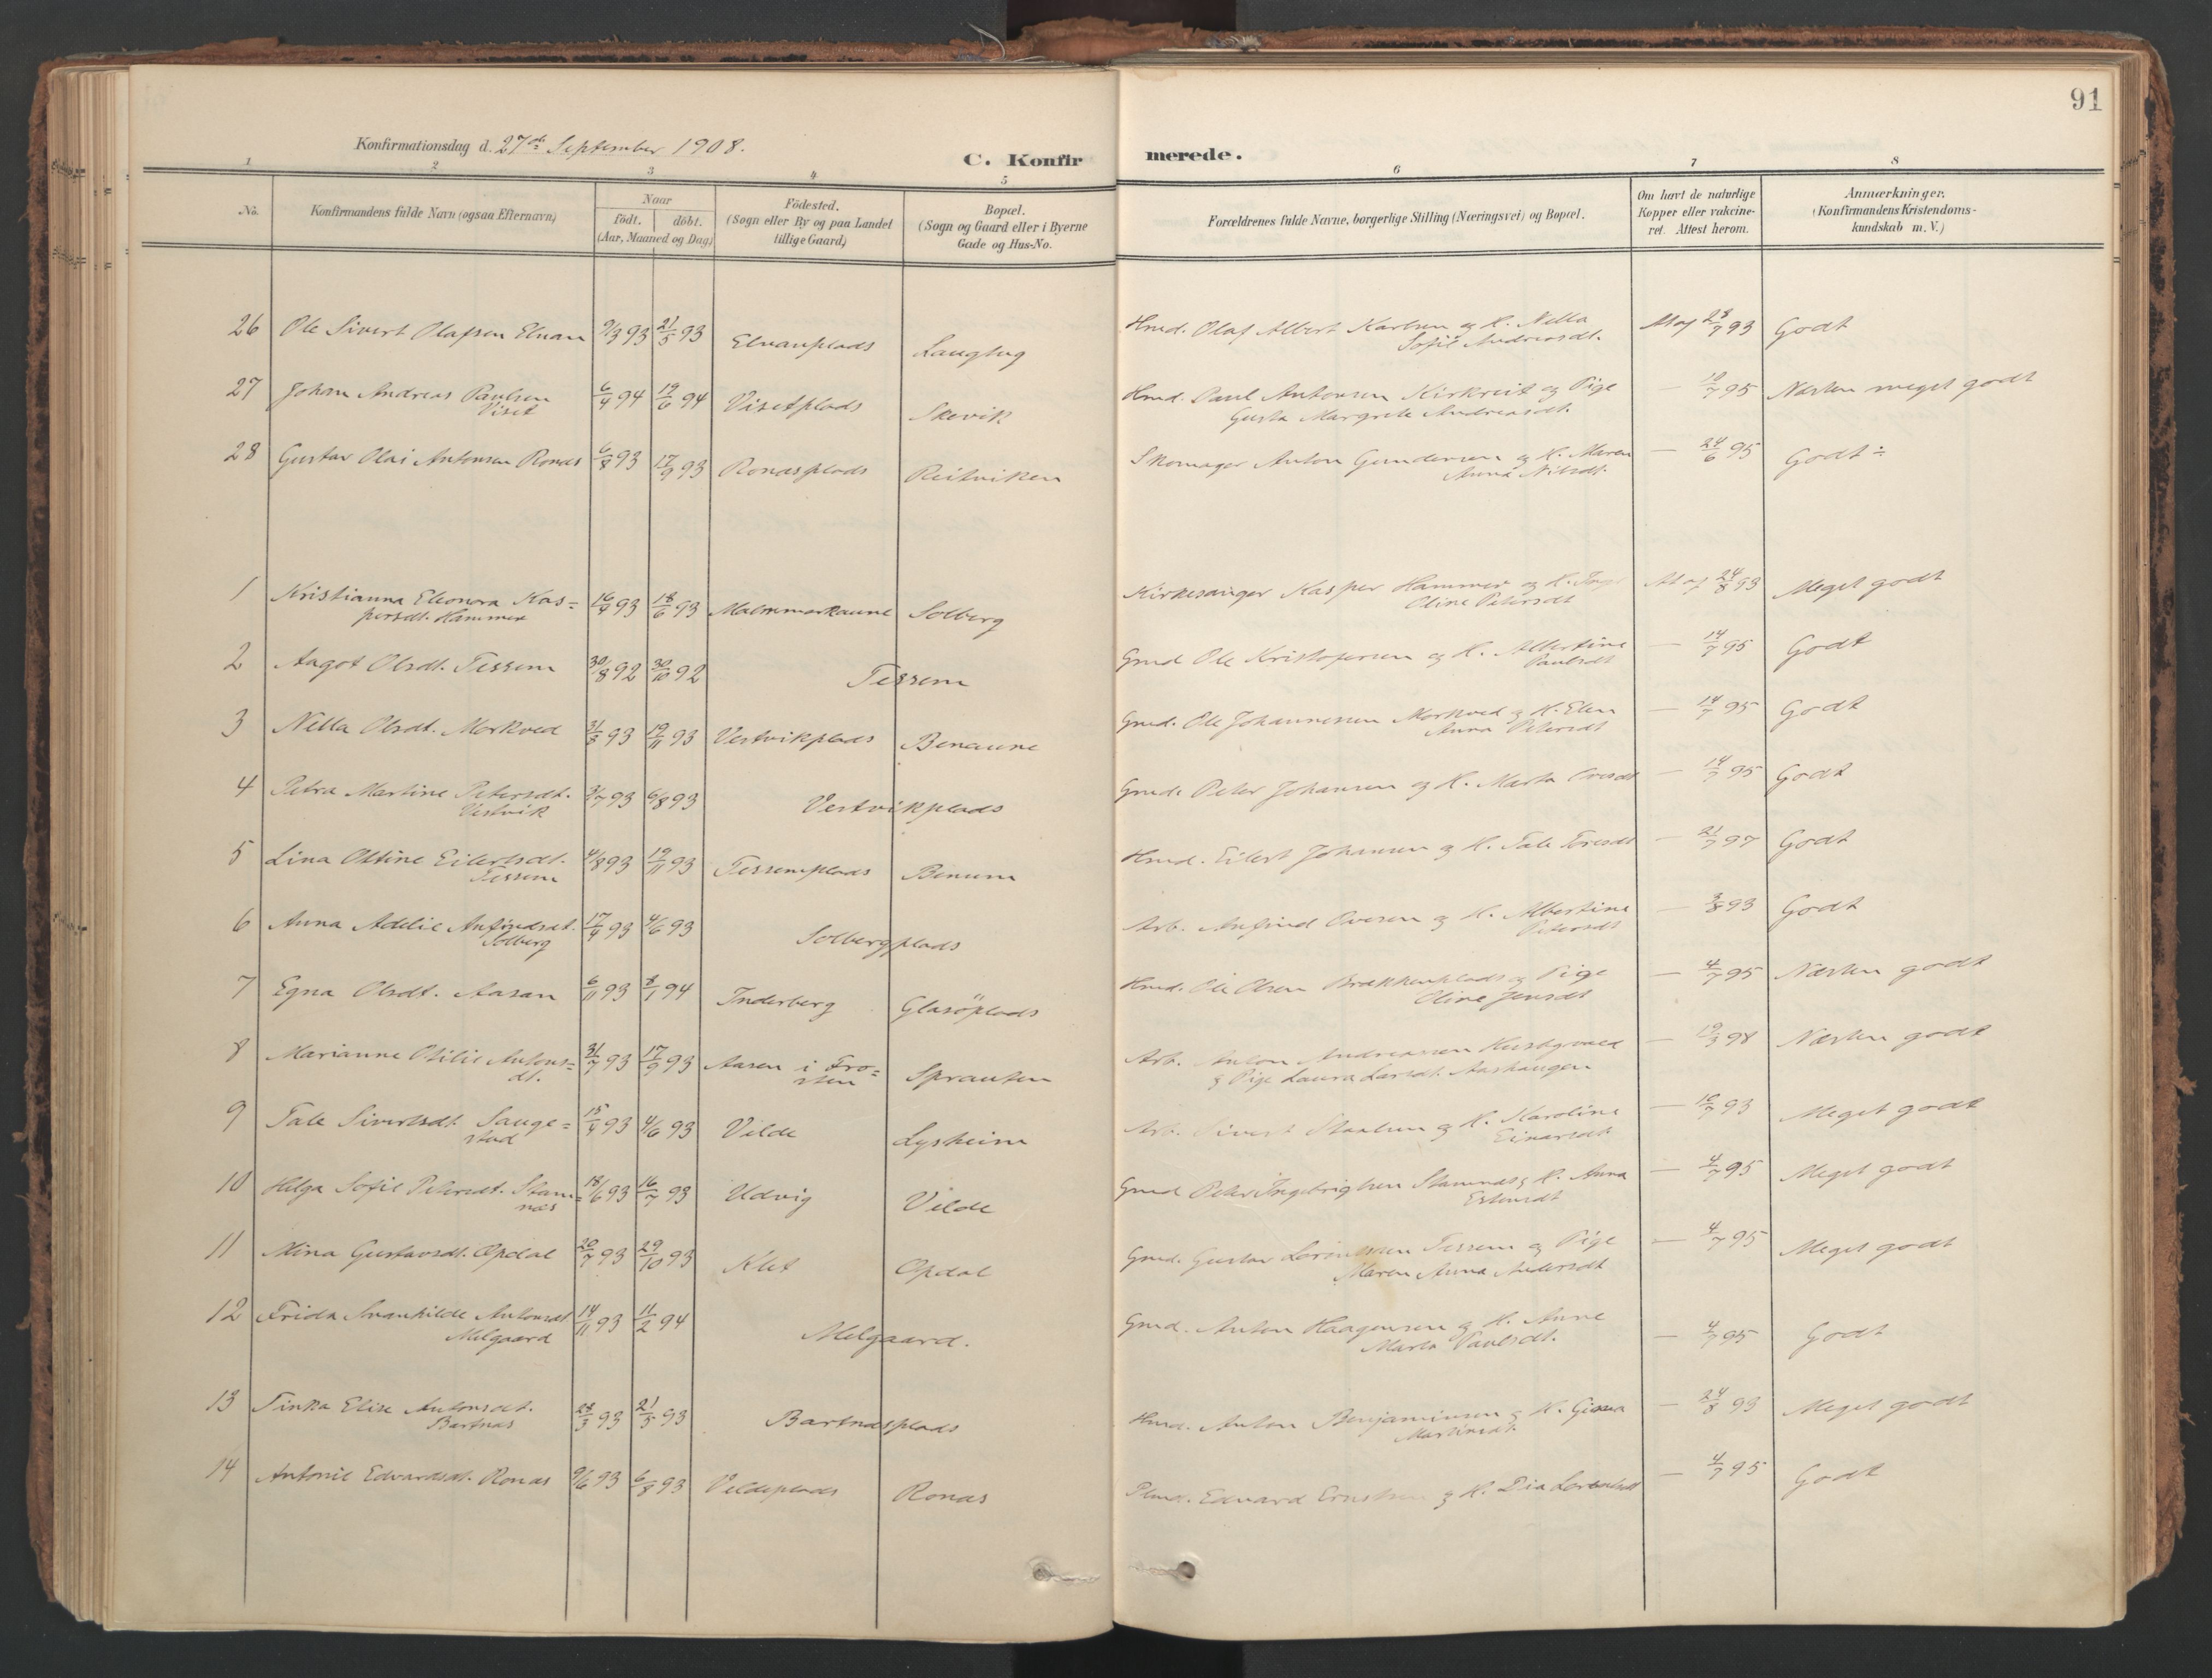 91
Konfirmationsdag d. 27de September 1908.
C. Konfir merede.
1 2 3 4 5 6 7 8
No.
Konfirmandens fulde Navn (ogsaa Efternavn)
Naar
födt. döbt.
(Aar, Maaned og Dag)
Födested.
(Sogn eller By og paa Landet
tillige Gaard)
Bopæl.
(Sogn og Gaard eller i Byerne
Gade og Hus-No.
Forældrenes fulde Navne, borgerlige Stilling (Næringsvei) og Bopæl.
Om havt de naturlige
Kopper eller vakcine-
ret. Attest herom.
Anmærkninger.
(Konfirmandens Kristendoms-
kundskab m. V.)
26 Ole Sivert Olafsen Elnan 9/3 93 21/5 93 Elnanplads Langtug Hmd. Olaf Albert Karlsen og K. Nella At af 28/7 93 Godt
Sofie Andreasdt.
27 Johan Andreas Paulsen 6/4 94 19/6 94 Visetplads Skevik Hmd. Paul Antonsen Kirkreit og Pige — 19/7 95 Næsten meget godt
Viset Gusta Margrete Andreasdt.
28 Gustav Olai Antonsen Ronas 6/8 93 17/9 93 Ronasplads Reitviken Skomager Anton Gundersen og K. Maren — 24/6 95 Godt ÷
Anna Nilsdt.
1 Kristianna Eleonora Kas= 16/4 93 18/6 93 Malmmarkaune Solberg Kirkesanger Kasper Hammer og K. At af 24/8 93 Meget godt
persdt. Hammer Oline Petersdt
2 Aagot Olsdt. Tessem 30/8 92 30/10 92 Tessem Gmd Ole Kristofersen og K. Albertine — 14/7 95 Godt
Paulsdt
3 Nella Olsdt. Morkved 31/8 93 19/11 93 Vestvikplads Benaune Gmd. Ole Johannessen Morkved og K. Elen — 14/7 95 Godt
Anna Petersdt
4 Petra Martine Petersdt. 3/7 93 6/8 93 Vestvikplads Gmd. Peter Johansen og K. Marta Oresdt — 14/7 95 Godt
Vestvik
5 Lina Ottine Eilertsdt. 4/8 93 19/11 93 Tessemplads Benum Hmd. Eilert Johansen og K. Tale Toresdt — 21/7 97 Godt
Tessem
6 Anna Adelie Anfindsdt. 17/4 93 4/6 93 Solbergplads Arb. Anfind Ovesen og K. Albertine — 3/8 93 Godt
Solberg Petersdt
7 Egna Olsdt. Aasan 6/11 93 8/1 94 Inderberg Glasöplads Hmd. Ole Olsen Brækkenplads og Pige — 4/7 95 Næsten godt
Oline Jensdt
8 Marianne Otilie Antons= 31/7 93 17/9 93 Aasen i Fro= Sprauten Arb. Anton Andreassen — 19/3 98 Næsten godt
dt. sten og Pige Laura Larsdt. Aashaugen
9 Tale Sivertsdt Sauge= 15/4 93 4/6 93 Velde Lysheim Arb. Sivert Staalsen og K. Karoline — 10/7 93 Meget godt
stad Einarsdt
10 Helga Sofie Petersdt. Stam= 18/6 93 16/7 93 Udvig Velde Gmd Peter Ingebrigtsen Stamnas og K. Anna — 4/7 95 Meget godt
nas Estensdt
11 Mina Gustavsdt. Opdal 20/7 93 29/10 93 Klet Opdal Gmd. Gustav Lorentsen Tessem og Pige — 4/7 95 Meget godt
Maren Anna Andersdt
12 Frida Svanhilde Antonsdt 14/11 93 11/2 94 Melgaard. Gmd. Anton Haagensen og K. Anne — 4/7 95 Godt
Melgaard Marta Paulsdt.
13 Tinka Elise Antonsdt. 28/3 93 21/5 93 Bartnasplads Hmd. Anton Benjaminsen og K. Gina — 24/8 93 Meget godt
Bartnas Martinsdt.
14 Antonie Edvardsdt. Ronas 9/6 93 6/8 93 Veldeplads Ronas Plmd. Edvard Ernstsen og K. Dia Lorentsdt — 4/7 95 Godt